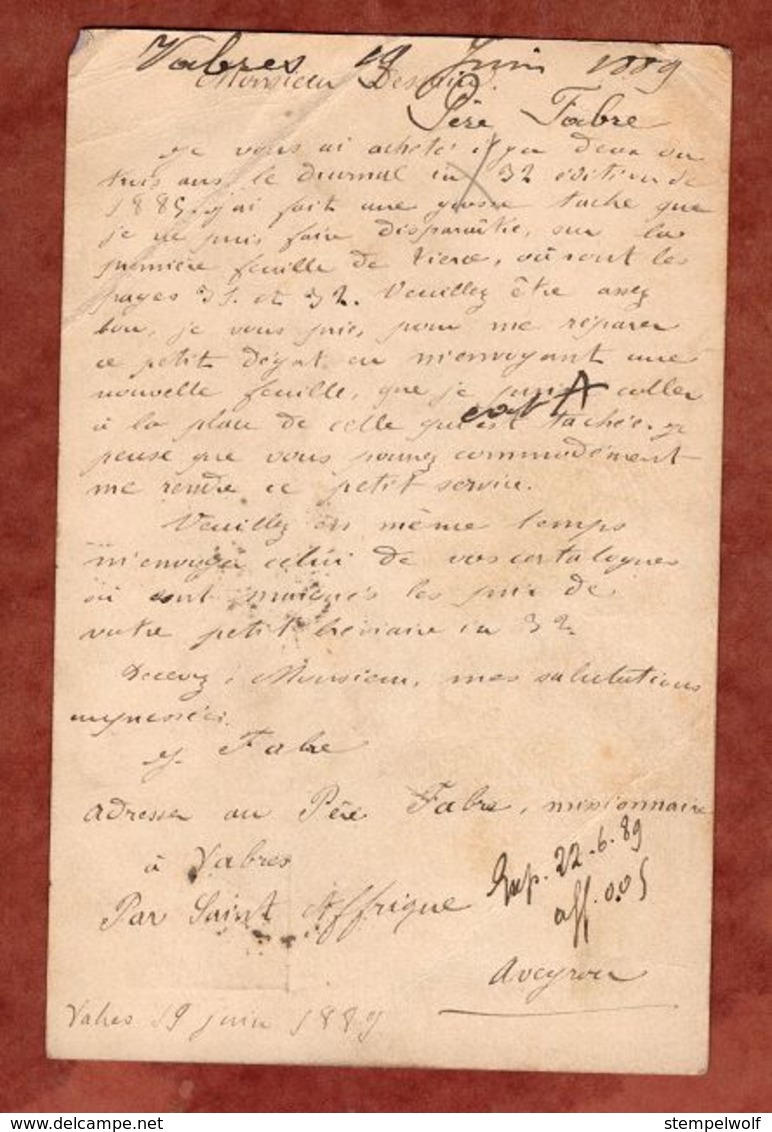 Vabres 19 Juin 1889
Monsieur
Père Fabre
Je vous ai acheté il y a deux ou
trois ans le diurnal in 32 édition de
1885. j'ai fait une grosse tache que
je ne puis faire disparaître, sur la
première feuille de tierce, où sont les
pages 31. et 32. Veuillez être assez
bon, je vous prie, pour me réparer
ce petit dégat en m'envoyant une
nouvelle feuille, que je puisse coller
à la place de celle qui est tachée. Je
pense que vous pouvez commodément
me rendre ce petit service.
Veuillez en même temps
m'envoyer celui de vos catalogues
où sont marqués les prix de
votre petit bréviaire in 32.
Recevez, Monsieur, mes salutations
empressées.
J. Fabre
adresser au Père Fabre, missionnaire
à Vabres
Par Saint Affrique
22-6-89
aff. 0.05
Aveyron
Vabres 19 juin 1889
delcampe.net
stempelwolf